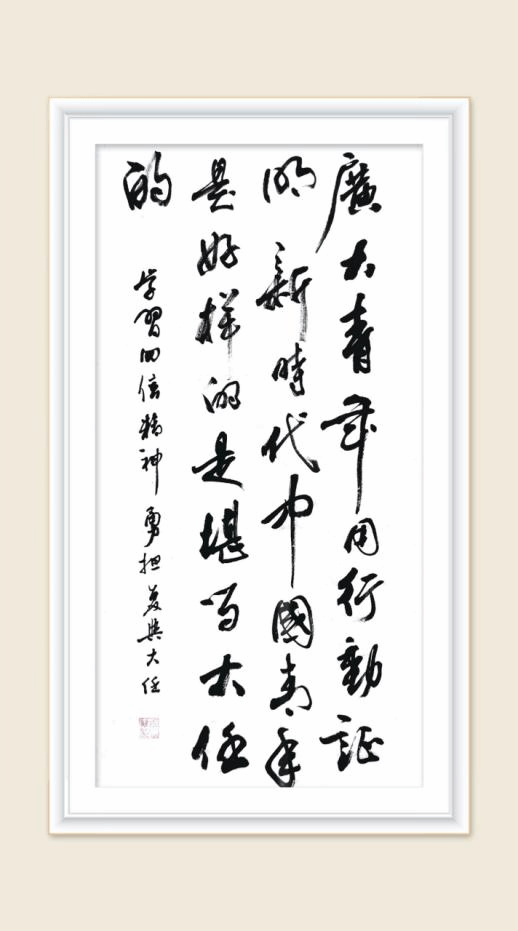 廣大青年用行動証
明新時代中國青年
是好样的是堪当大任
的
学習回信精神 勇担复興大任